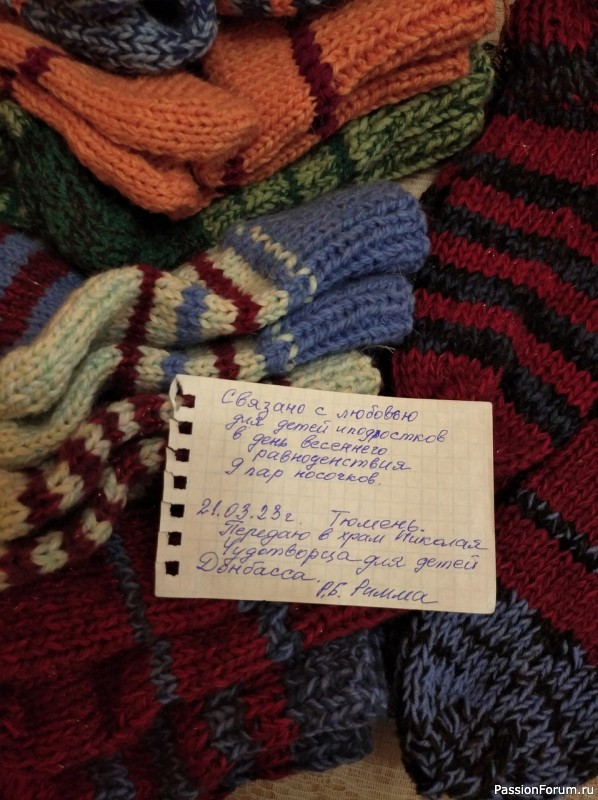 Связано с любовью
для детей и подростков
в день весеннего
равноденствия
9 пар носочков.
21.03.23г. Тюмень.
Передаю в храм Николая
Чудотворца для детей
Донбасса.
Р.Б. Римма
PassionForum.ru